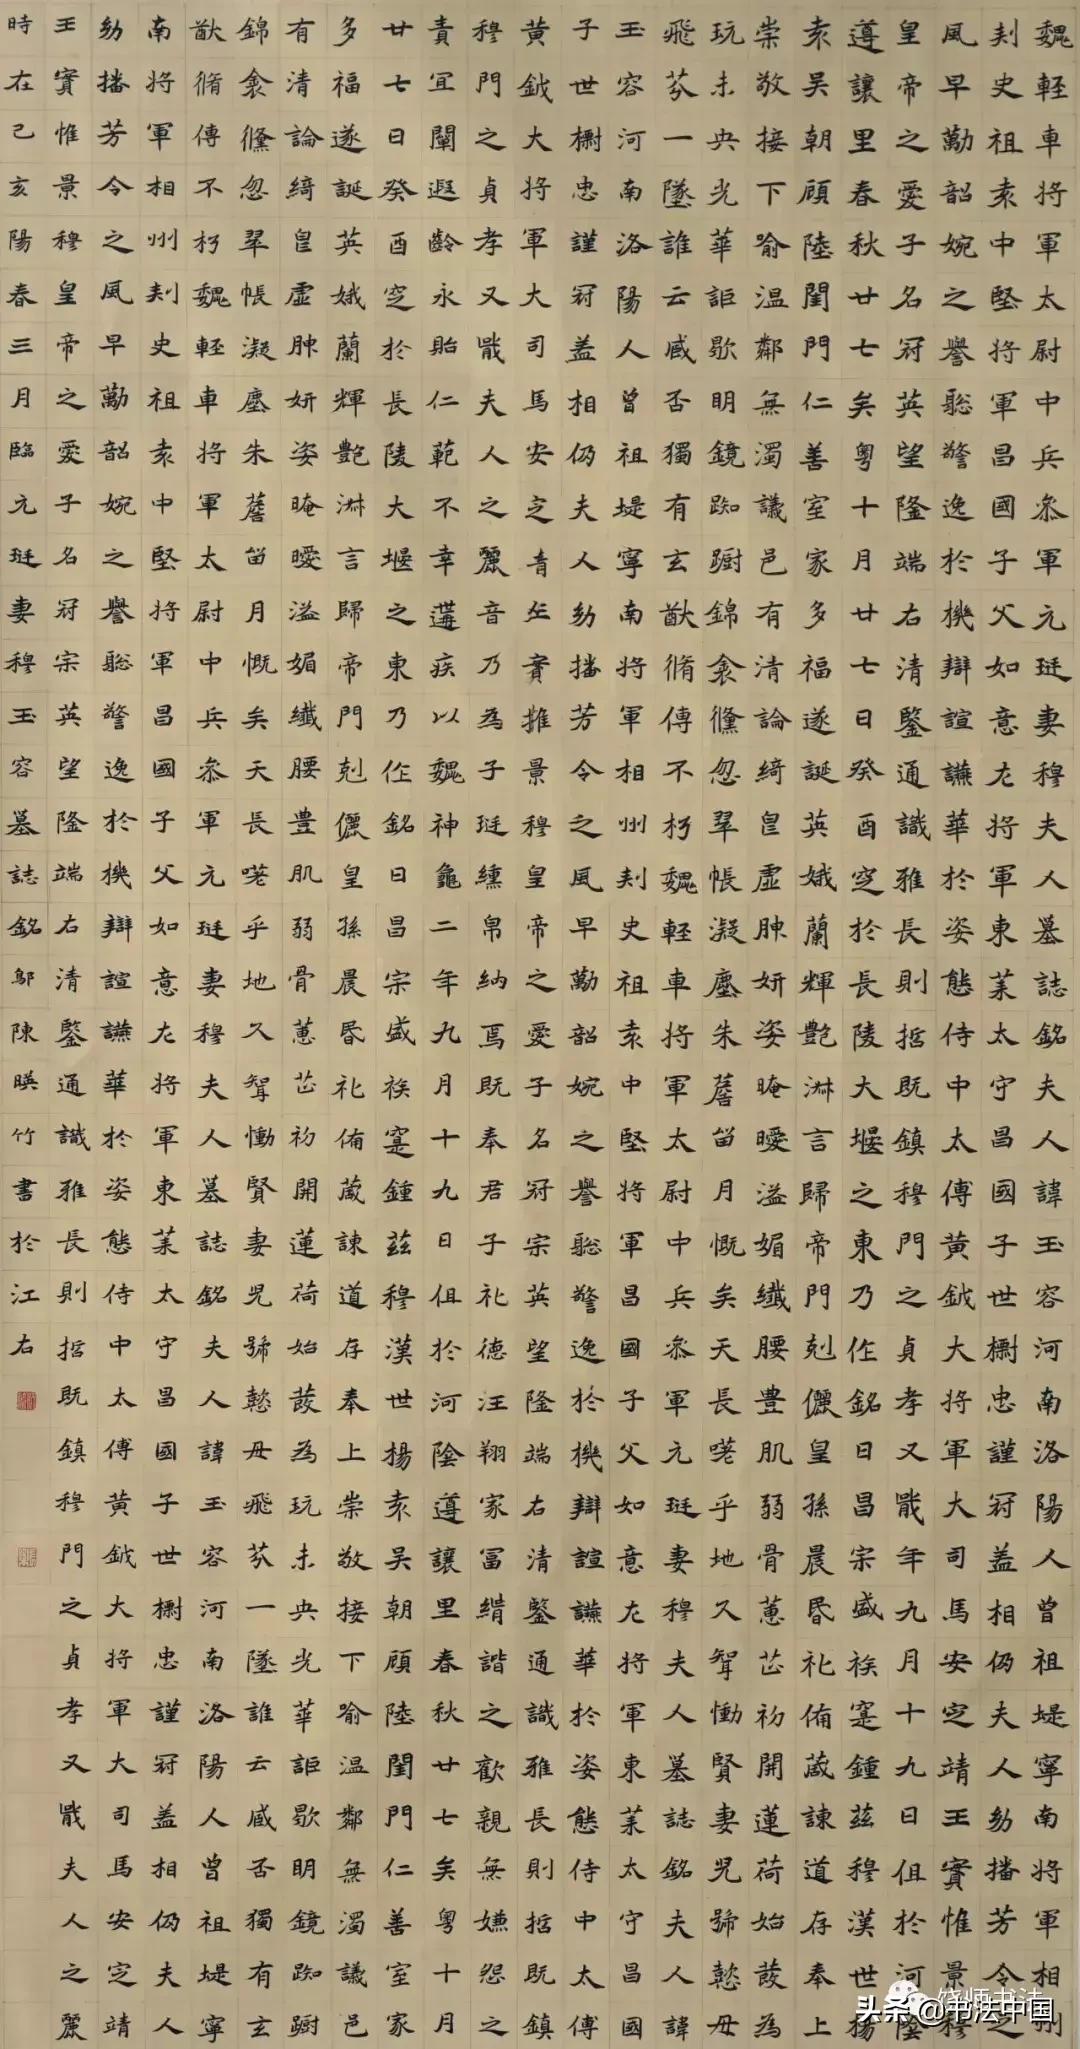 魏輕車將軍太尉中兵叅軍元珽妻穆夫人墓誌銘夫人諱玉容河南洛陽人曾祖堤寧南將軍相州
刾史祖袁中堅將軍昌國子父如意左將軍東萊太守昌國子世檦忠謹冠蓋相仍夫人幼播芳令之
風早勤韶婉之譽聡警逸於機辯諠讌華於姿態侍中太傅黃鉞大將軍大司馬安定靖王實惟景穆
皇帝之愛子名冠英望隆端右清鑒通識雅長則哲既鎮穆門之貞孝又戢年九月十九日俎於河陰
遵讓里春秋廿七矣粵十月廿七日癸酉窆於長陵大堰之東乃作銘曰昌宗盛族寔鍾茲穆漢世揚
袁吴朝顧陸閨門仁善室家多福遂誕英娥蘭輝艷淋言歸帝門剋儷皇孫晨昏礼侑葴諌道存奉上
崇敬接下喻温鄰無濁議邑有清論綺皃虛腗妍姿晻曖溢媚纖腰豊肌弱骨蕙芷初開蓮荷始蕟為
玩未央光華詎歇明鏡踟躕錦衾儵忽翠帳凝塵朱簷留月慨矣天長嗟乎地久慟賢妻兒號懿毋
飛芬一墜誰云臧否獨有玄猷脩傳不朽魏輕車將軍太尉中兵叅軍元珽妻穆夫人墓誌銘夫人諱
玉容河南洛陽人曾祖堤寧南將軍相州刾史祖袁中堅將軍昌國子父如意左將軍東萊太守昌國
子世檦忠謹冠蓋相仍夫人幼播芳令之風早勤韶婉之譽聡警逸於機辯諠讌華於姿態侍中太傅
黃鉞大將軍大司馬安定青王實推景穆皇帝之愛子名冠宗英望隆端右清鑒通識雅長則哲既鎮
穆門之貞孝又戢夫人之麗音乃為子珽纁帛納焉既奉君子礼德汪翔家冨縎諧之歡親無嫌怨之
責宜闡遐齡永貽仁範不幸遘疾以魏神龜二年九月十九日俎於河陰遵讓里春秋廿七矣粵十月
廿七日癸酉窆於長陵大堰之東乃作銘曰昌宗盛族寔鍾茲穆漢世揚袁吴朝顧陸閨門仁善室家
多福遂誕英娥蘭輝艷淋言歸帝門剋儷皇孫晨昏礼侑葴諌道存奉上崇敬接下喻温鄰無濁議邑
有清論綺皃虛腗妍姿晻曖溢媚纖腰豊肌弱骨蕙芷初開蓮荷始蕟為玩未央光華詎歇明鏡踟躕
錦衾儵忽翠帳凝塵朱簷留月慨矣天長嗟乎地久慟賢妻兒號懿毋飛芬一墜誰云臧否獨有玄
猷脩傳不朽魏輕車將軍太尉中兵叅軍元珽妻穆夫人墓誌銘夫人諱玉容河南洛陽人曾祖堤寧
南將軍相州刾史祖袁中堅將軍昌國子父如意左將軍東萊太守昌國子世檦忠謹冠蓋相仍夫人
幼播芳令之風早勤韶婉之譽聡警逸於機辯諠讌華於姿態侍中太傅黃鉞大將軍大司馬安定靖
王實惟景穆皇帝之愛子名冠宗英望隆端右清鑒通識雅長則哲既鎮穆門之貞孝又戢夫人之麗
時在己亥陽春三月臨元珽妻穆玉容墓誌銘鄔陳暎竹書於江右
饶师书法
头条 @书法中国